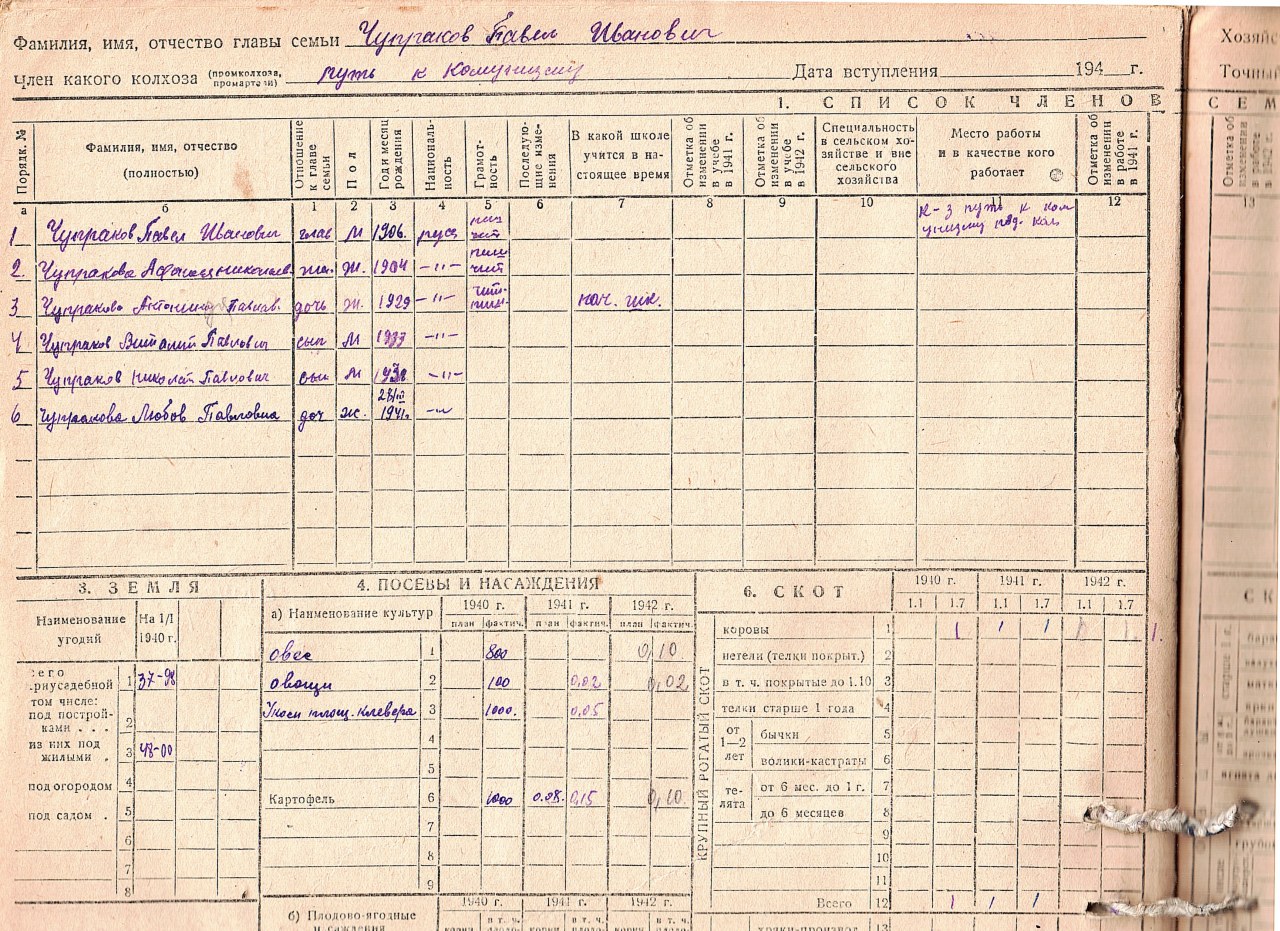 Фамилия, имя, отчество главы семьи Чупраков Павел Иванович
Член какого колхоза (промколхоза, промартели) путь к Комунизму Дата вступления 194 г.
Хозяйс
Точный
1. СПИСОК ЧЛЕНОВ
СЕМ
Порядк. №
Фамилия, имя, отчество (полностью)
Отношение к главе семьи
Пол
Год и месяц рождения
Националь-ность
Грамот-ность
Последую-щие изме-нения
В какой школе учится в на-стоящее время
Отметка об изменении в учебе в 1941 г.
Отметка об изменении в учебе в 1942 г.
Специальность в сельском хо-зяйстве и вне сельского хозяйства
Место работы и в качестве кого работает
Отметка об изменении в работе в 1941 г.
Отметка об изменении в работе в 1942 г.
а б 1 2 3 4 5 6 7 8 9 10 11 12 13
1 Чупраков Павел Иванович глав М 1906. русс к-з путь к ком
унизму ряд. кол
2. жен. Ж. 1904 -"-
3 Чупракова Антонина Павлов. дочь Ж. 1929 -"- нач. шк.
4 Чупраков Виталий Павлович сын М -"-
5 Чупраков Николай Павлович сын М 1938 -"-
6 Чупракова Любов Павловна доч ж. 1941г. -"-
3. ЗЕМЛЯ
Наименование угодий
На 1/I 1940 г.
сего
приусадебной 1 37-98
том числе:
под построй-
ками . . . 2
из них под
жилыми . 3 48-00
под огородом 4
под садом . 5
6
7
8
4. ПОСЕВЫ И НАСАЖДЕНИЯ
а) Наименование культур 1940 г. 1941 г. 1942 г.
план фактич. план фактич. план фактич.
овес 1 800 0,10
овощи 2 100 0,02 0,02
Укосн площ. клевера 3 1000. 0,05
4
5
Картофель 6 1000 0.08. 0,15 0,10
7
8
9
1940 г. 1941 г. 1942 г.
б) Плодово-ягодные
в т. ч. в т. ч. в т. ч.
6. СКОТ
1940 г. 1941 г. 1942 г.
1.1 1.7 1.1 1.7 1.1 1.7
КРУПНЫЙ РОГАТЫЙ СКОТ
коровы 1 1 1 1 1.
нетели (телки покрыт.) 2
в т. ч. покрытые до 1.10 3
телки старше 1 года 4
от 1—2 лет
бычки 5
волики-кастраты 6
те-лята
от 6 мес. до 1 г. 7
до 6 месяцев 8
9
10
11
Всего 12 1 1 1
13
СК